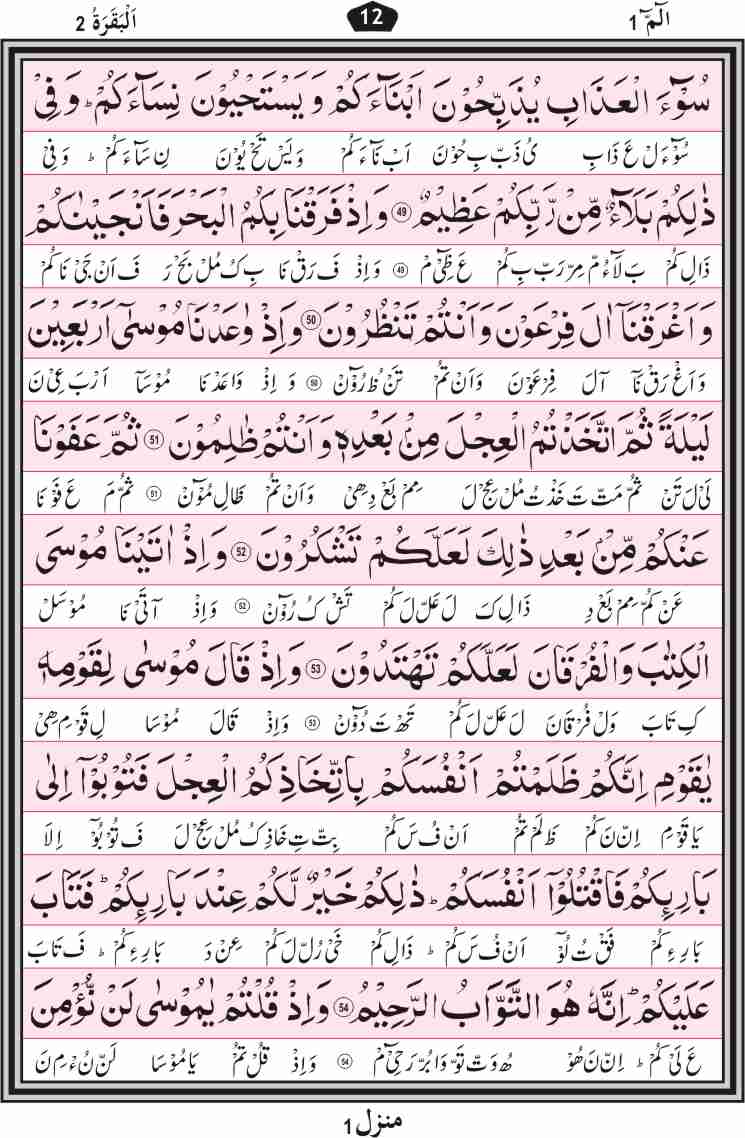 الٓمّٓ 1 12 اَلْبَقَرَةُ 2
سُوْٓءَ الْعَذَابِ يُذَبِّحُوْنَ اَبْنَآءَكُمْ وَ يَسْتَحْيُوْنَ نِسَآءَكُمْ ؕ وَ فِیْ
سُوْٓءَ لْ عَ ذَابِ یُ ذَبّ بِ حُوْنَ اَبْ نَآءَ كُمْ وَ یَسْ تَحْ یُوْنَ نِ سَآءَ كُمْ ؕ وَ فِیْ
ذٰلِكُمْ بَلَآءٌ مِّنْ رَّبِّكُمْ عَظِیْمٌ 49 وَ اِذْ فَرَقْنَا بِكُمُ الْبَحْرَ فَاَنْجَیْنٰكُمْ
ذَالِ كُمْ بَ لَآءُ مّ مِرّ رَبّ بِ كُمْ عَ ظِیْٓمْ 49 وَ اِذْ فَ رَقْ نَا بِ كُ مُلْ بَحْ رَ فَ اَنْ جَیْ نَا كُمْ
وَ اَغْرَقْنَاۤ اٰلَ فِرْعَوْنَ وَ اَنْتُمْ تَنْظُرُوْنَ 50 وَ اِذْ وٰعَدْنَا مُوْسٰۤی اَرْبَعِیْنَ
وَ اَغْ رَقْ نَآ آلَ فِرْعَوْنَ وَ اَنْ تُمْ تَنْ ظُ رُوْٓنْ 50 وَ اِذْ وَاعَدْ نَا مُوْسَآ اَرْبَ عِیْ نَ
لَیْلَةً ثُمَّ اتَّخَذْتُمُ الْعِجْلَ مِنْۢ بَعْدِهٖ وَ اَنْتُمْ ظٰلِمُوْنَ 51 ثُمَّ عَفَوْنَا
لَیْ لَ تَنْ ثُمّ مَتّ تَ خَذْ تُ مُلْ عِجْ لَ مِمْ بَعْ دِهِیْ وَ اَنْ تُمْ ظَالِ مُوْٓنْ 51 ثُمّ مَ عَ فَوْ نَا
عَنْكُمْ مِّنْۢ بَعْدِ ذٰلِكَ لَعَلَّكُمْ تَشْكُرُوْنَ 52 وَ اِذْ اٰتَیْنَا مُوْسَی
عَنْ كُمّ مِمْ بَعْ دِ ذَالِ كَ لَ عَلّ لَ كُمْ تَشْ كُ رُوْٓنْ 52 وَ اِذْ آتَیْ نَا مُوْسَلْ
الْكِتٰبَ وَ الْفُرْقَانَ لَعَلَّكُمْ تَهْتَدُوْنَ 53 وَ اِذْ قَالَ مُوْسٰی لِقَوْمِهٖ
كِ تَابَ وَلْ فُرْقَانَ لَ عَلّ لَ كُمْ تَهْ تَ دُوْٓنْ 53 وَ اِذْ قَالَ مُوْسَا لِ قَوْمِ هِیْ
یٰقَوْمِ اِنَّكُمْ ظَلَمْتُمْ اَنْفُسَكُمْ بِاتِّخَاذِكُمُ الْعِجْلَ فَتُوْبُوْۤا اِلٰی
یَا قَوْمِ اِنّ نَ كُمْ ظَ لَمْ تُمْ اَنْ فُ سَ كُمْ بِتّ تِ خَاذِ كُ مُلْ عِجْ لَ فَ تُوْبُوْٓ اِلَا
بَارِىِٕكُمْ فَاقْتُلُوْۤا اَنْفُسَكُمْ ؕ ذٰلِكُمْ خَیْرٌ لَّكُمْ عِنْدَ بَارِىِٕكُمْ ؕ فَتَابَ
بَارِ ءِ كُمْ فَقْ تُ لُوْٓ اَنْ فُ سَ كُمْ ؕ ذَالِ كُمْ خَیْ رُلّ لَ كُمْ عِنْ دَ بَارِ ءِ كُمْ ؕ فَ تَابَ
عَلَیْكُمْ ؕ اِنَّهٗ هُوَ التَّوَّابُ الرَّحِیْمُ 54 وَ اِذْ قُلْتُمْ یٰمُوْسٰی لَنْ نُّؤْمِنَ
عَ لَیْ كُمْ ؕ اِنّ نَ هُوْ هُ وَتّ تَوّ وَابُرّ رَحِیْٓمْ 54 وَ اِذْ قُلْ تُمْ یَا مُوْسَا لَنّ نُءْ مِ نَ
منزل 1